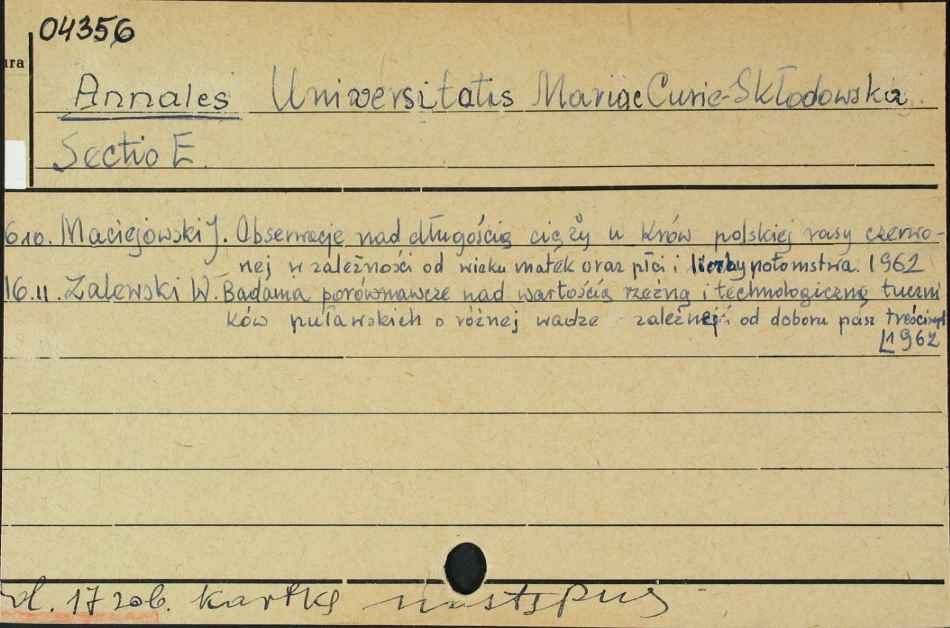 04356
ura
Annales Universitatis Mariae Curie-Skłodowska.
Sectio E.
6.10. Maciejowski J. Obserwacje nad długością ciąży u krów polskiej rasy czerwo-
nej w zależności od wieku matek oraz płci i liczby potomstwa. 1962
16.11. Zalewski W. Badania porównawcze nad wartością rzeźną i technologiczną tuczni
ków puławskich o różnej wadze zależnej od doboru pasz treściwych
1962
d. 17 zob. kartkę następną